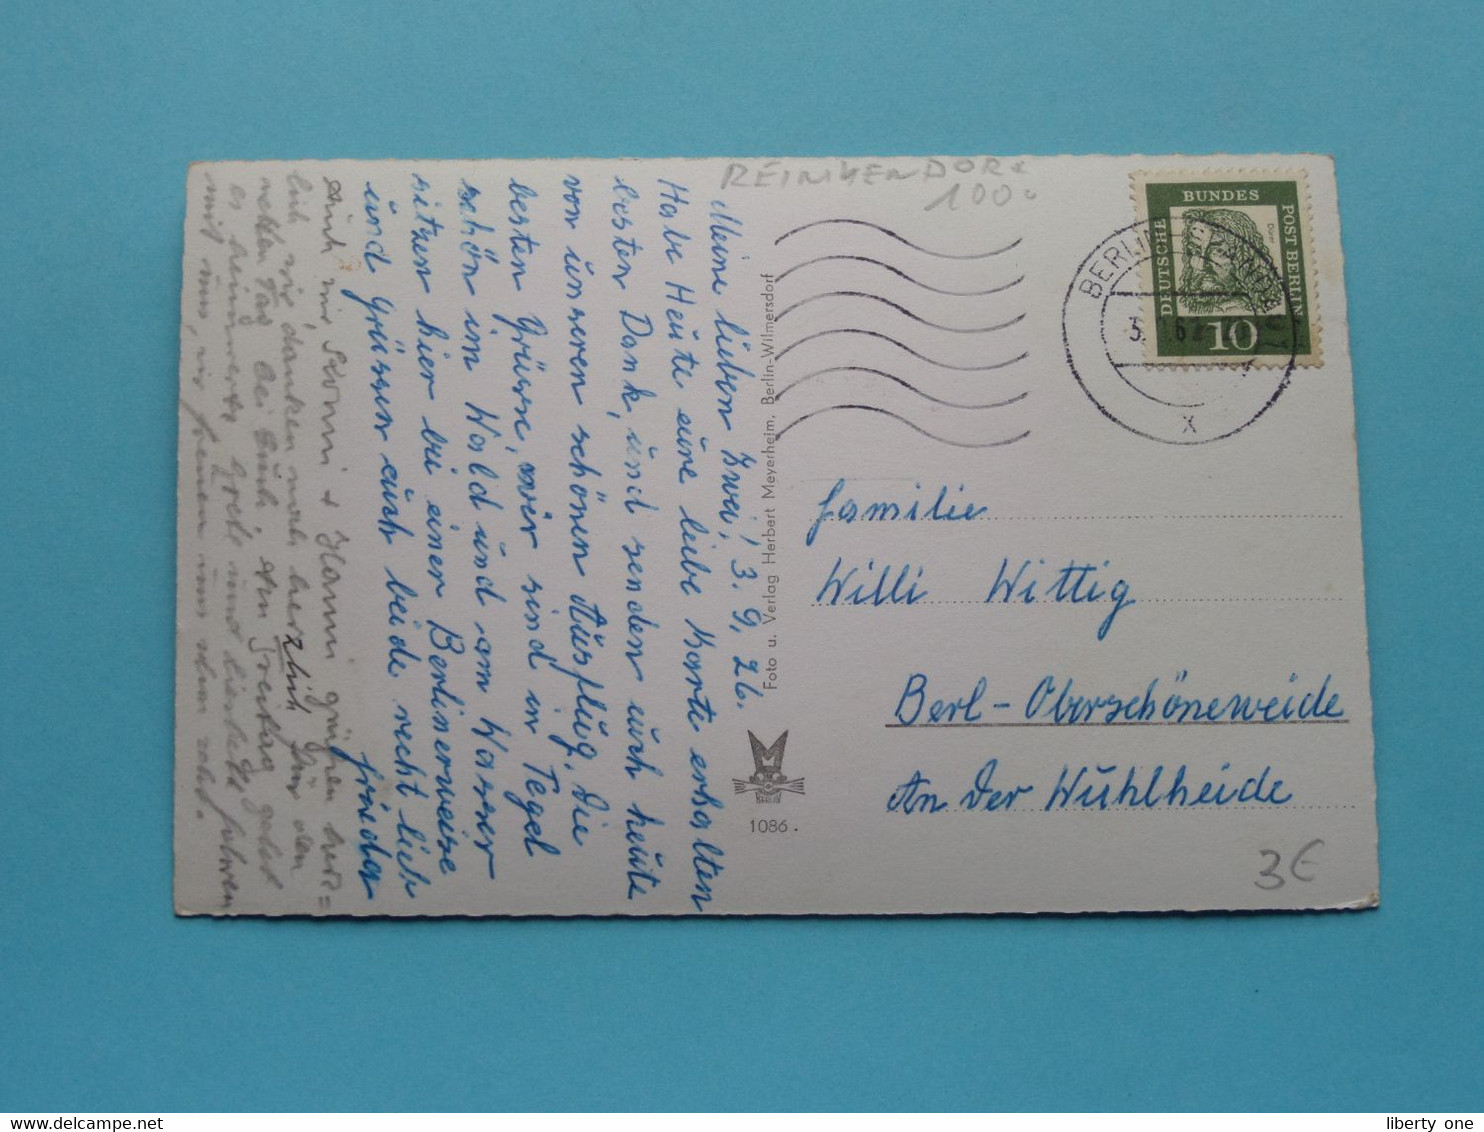 REINIKENDORF
100.-
Meine lieben Zwei! 3.9.26.
Habe Heute eure liebe Karte erhalten
besten Dank, und senden euch heute
von unseren schönen Ausflug, die
besten Grüsse, wir sind in Tegel
schön im Wald und am Wasser
sitzen hier bei einer Berlinerweisse
und grüssen euch beide recht lieb
Frieda
Auch wir Romi + Hanni grüßen herz=
lich, wir danken noch herzlich für den
netten Tag bei Euch. Am Freitag geht
es heimwärts
mit uns, wir freuen uns schon sehr.
Foto u. Verlag Herbert Meyerheim, Berlin-Wilmersdorf
BERLIN
1086.
DEUTSCHE BUNDES POST BERLIN
Dürer
10
BERLIN
3.
x
Familie
Willi Wittig
Berl-Oberschöneweide
An Der Wuhlheide
3€
liberty one